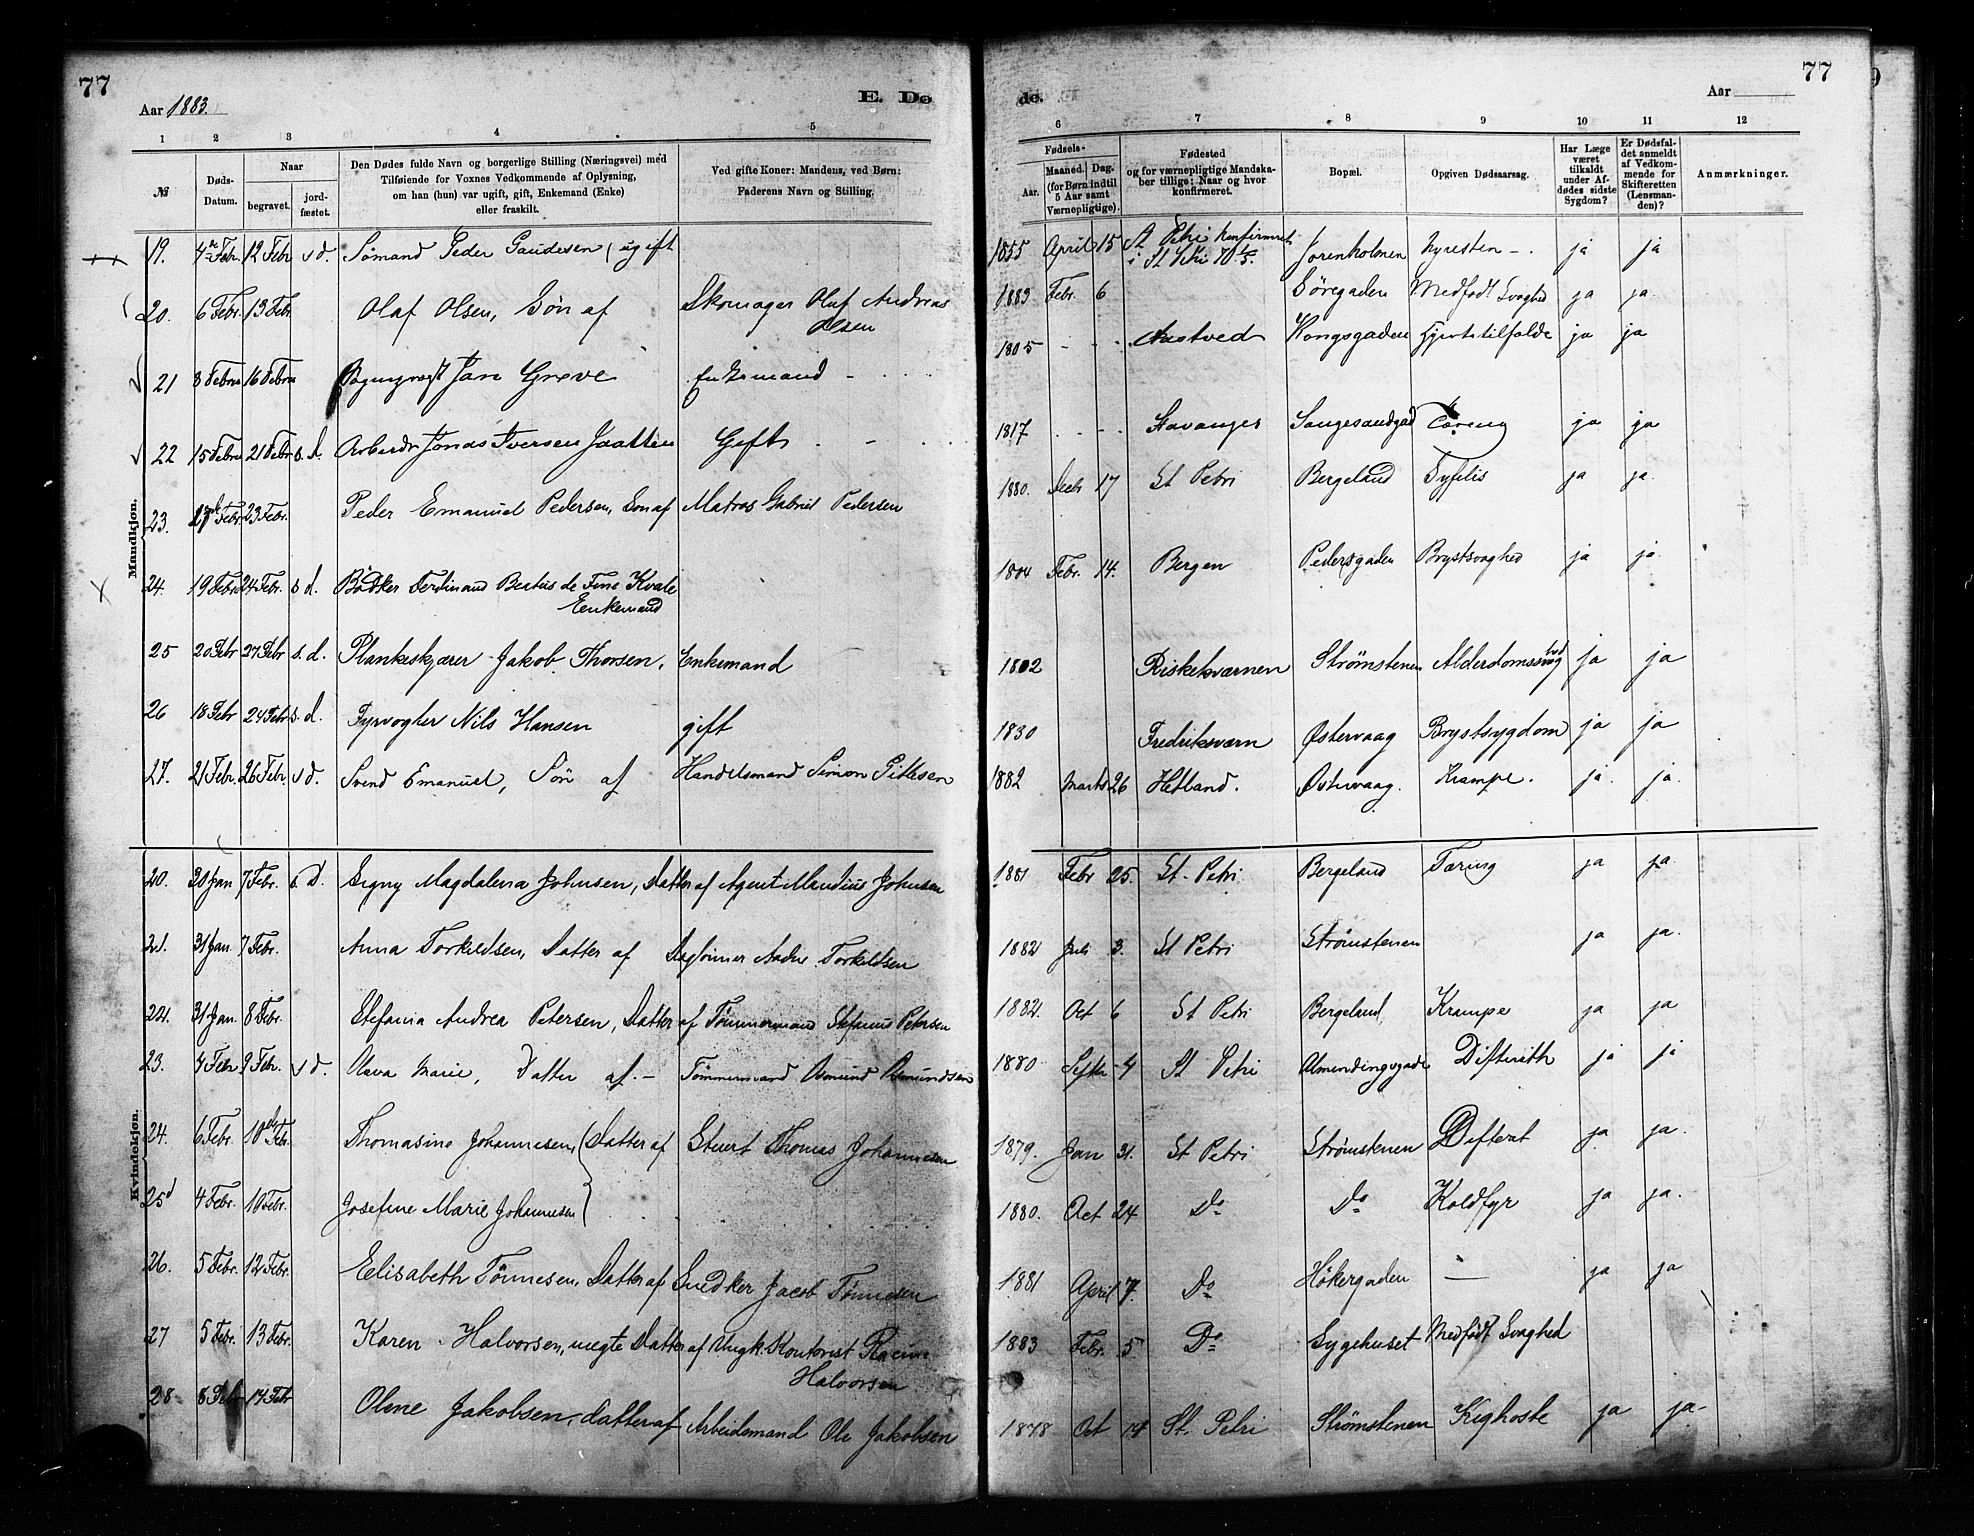 77
Aar 1883.
E. Dø
1 2 3 4 5
№ Døds-Datum. Naar begravet. jord-fæstet. Den Dødes fulde Navn og borgerlige Stilling (Næringsvei) med
Tilføiende for Voxnes Vedkommende af Oplysning,
om han (hun) var ugift, gift, Enkemand (Enke)
eller fraskilt.
Ved gifte Koner: Mandens, ved Børn:
Faderens Navn og Stilling.
Mandkjøn.
19. 4 Febr. 12 Febr s d. Sømand Peder Gaudesen (ugift
20. 6 Febr. 13 Febr. Olaf Olsen, Søn af Skomager Olaf Andreas
Olsen
21 8 Febru 16 Febru Jan Greve Enkemand
22 15 Febru 21 Febr s. d. Arbeider Jonas Iversen Jaatten Gift
23. Febr. 23 Febr. Peder Emanuel Pedersen, Søn af Matros Gabriel Pedersen
24. 19 Febr 24 Febr. s d. Bødker Ferdinand Beatus de Fine Kvale
Enkemand
25 20 Febr 27 Febr s. d. Plankeskjærer Jakob Thorsen. Enkemand
26 18 Febr 24 Febr s. d. Fyrvogter Nils Hansen gift
27. 21 Febr. 26 Febr. s d. Svend Emanuel, Søn af Handelsmand Simon
Kvindekjøn.
20. 30 Jan 7 Febr. s. d. Signy Magdalena Johnsen, Datter af Agent Johnsen
21. 31 Jan 7 Febr. Anna Torkildsen, Datter af Torkildsen
22. 31 Jan. 8 Febr. Stefania Andrea Petersen, Datter af Tømmermand Stefanus Petersen
23. 4 Febr 9 Febr. s d. Olava Marie, Datter af.- Tømmermand Osmund Osmundsen
24. 6 Febr. 10de Febr. Thomasine Johannesen, (Datter af Stuert Thomas Johannesen
25 4 Febr. 10 Febr. Josefine Marie Johannesen
26. 5 Febr. 12 Febr. Elisabeth Tønnesen, Datter af Snedker Jacob Tønnesen
27 5 Febr. 13 Febr. Karen Halvorsen, uægte Datter af Ungk. Kontorist
Halvorsen
28 8 Febr 14 Febr Olene Jakobsen, datter af Arbeidsmand Ole Jakobsen
77
de.
Aar
6 7 8 9 10 11 12
Fødsels-
Aar. Maaned. Dag.
(for Børn indtil
5 Aar samt
Værnepligtige).
Fødested
og for værnepligtige Mandska-
ber tillige: Naar og hvor
konfirmeret.
Bopæl.
Opgiven Dødsaarsag.
Har Læge
været
tilkaldt
under Af-
dødes sidste
Sygdom?
Er Dødsfal-
det anmeldt
af Vedkom-
mende for
Skifteretten
(Lensman-
den)?
Anmærkninger.
1855 April 15 St Petri konfirmeret
i St Petri Jorenholmen ja ja
1883 Febr. 6 Søregaden Medfødt Svaghed ja ja.
1805 - - - Kongsgaden Hjertetilfælde ja ja
1817 - - - Stavanger Tæring ja ja
1880. Decbr 17 St Petri Bergeland Syfilis ja ja.
1804 Febr. 14. Bergen Pedersgaden Brystsvaghed ja ja.
1802 Riskekværnen Strømstenen Alderdomssvaghed ja ja
1830 Fredriksværn Østervaag Brystsygdom ja ja
1882 Marts 26 Hetland. Østervaag. Krampe. ja. ja.
1881 Febr 25. St. Petri Bergeland Tæring ja ja.
1882 Juli 3. St Petri Strømstenen ja ja.
1882. Oct 6 St Petri Bergeland Krampe ja ja
1880 Septbr 4 St Petri Almendingsgade Difterith ja ja
1879. Jan 31. St Petri Strømstenen Difterit ja ja.
1880. Oct 24 Do Do Koldfyr ja ja.
1881 April 7. Do Høkergaden — ja ja
1883 Febr. 5. Do Sygehuset Medfødt Svaghed
1878 Oct 14 St. Petri Strømstenen Kighoste ja ja-